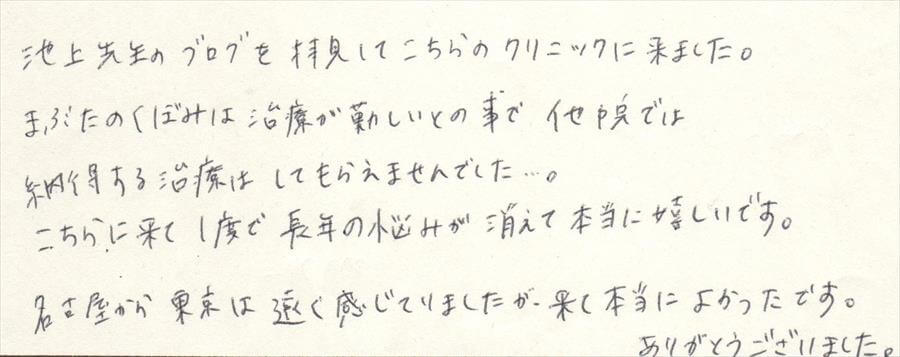 池上先生のブログを拝見してこちらのクリニックに来ました。
まぶたのくぼみは治療が難しいとの事で 他院では
納得する治療はしてもらえませんでした…。
こちらに来て1度で長年の悩みが消えて本当に嬉しいです。
名古屋から東京は遠く感じていましたが、来て本当によかったです。
ありがとうございました。